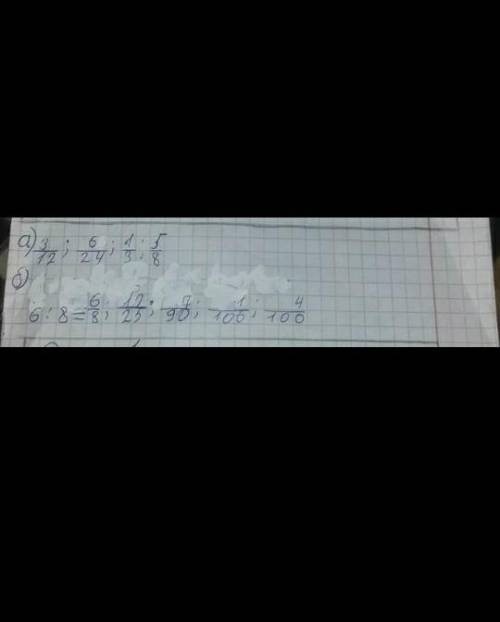 а) 3/12; 6/24; 1/3; 5/8
б)
6:8=6/8; 12/25; 7/90; 1/100; 4/100